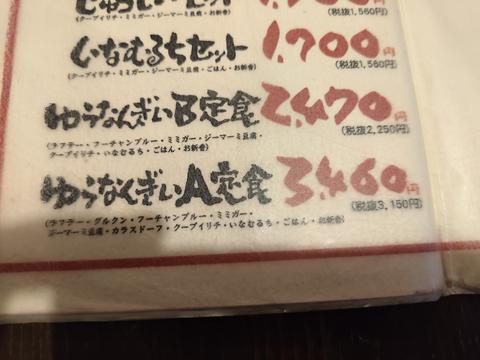 (税抜1,560円)
(クーブイリチ・ミミガー・ジーマーミ豆腐・ごはん・お新香)
いなむるちセット 1,700円
(税抜1,560円)
(クーブイリチ・ミミガー・ジーマーミ豆腐・ごはん・お新香)
ゆうなんぎぃB定食 2,470円
(税抜2,250円)
(ラフテー・フーチャンプルー・ミミガー・ジーマーミ豆腐・
クーブイリチ・いなむるち・ごはん・お新香)
ゆうなんぎぃA定食 3,460円
(税抜3,150円)
(ラフテー・グルクン・フーチャンプルー・ミミガー・
ジーマーミ豆腐・カラスドーフ・クーブイリチ・いなむるち・ごはん・お新香)